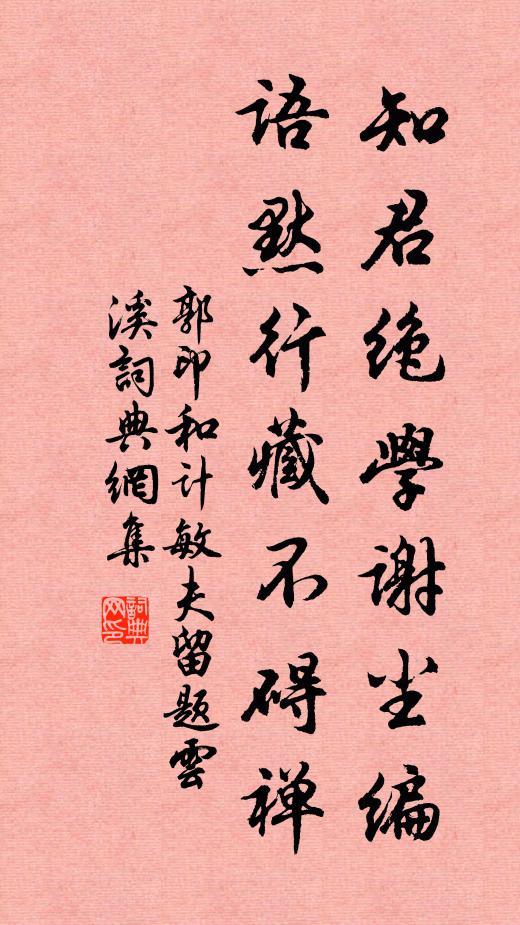 知君绝学谢尘编
语默行藏不碍禅
郭印和计敏夫留题雲
溪詞典網集
詞典网印